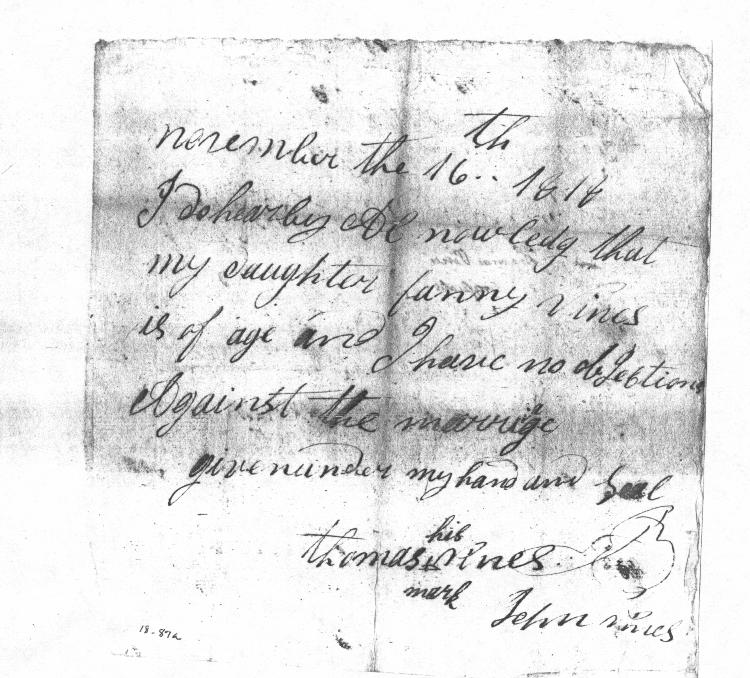 november the 16th .. 1818
I do hearby Ac nowledg that
my daughter fanny vines
is of age and I have no objections
Against the marrige
given under my hand and Seal
his
thomas vines
mark
John vines
18-87a